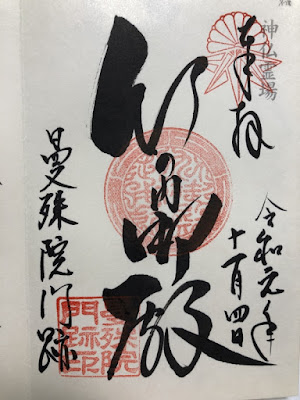 神仏霊場
奉拝
令和元年
十一月四日
竹の内御殿
曼殊院門跡
曼殊院
門跡印